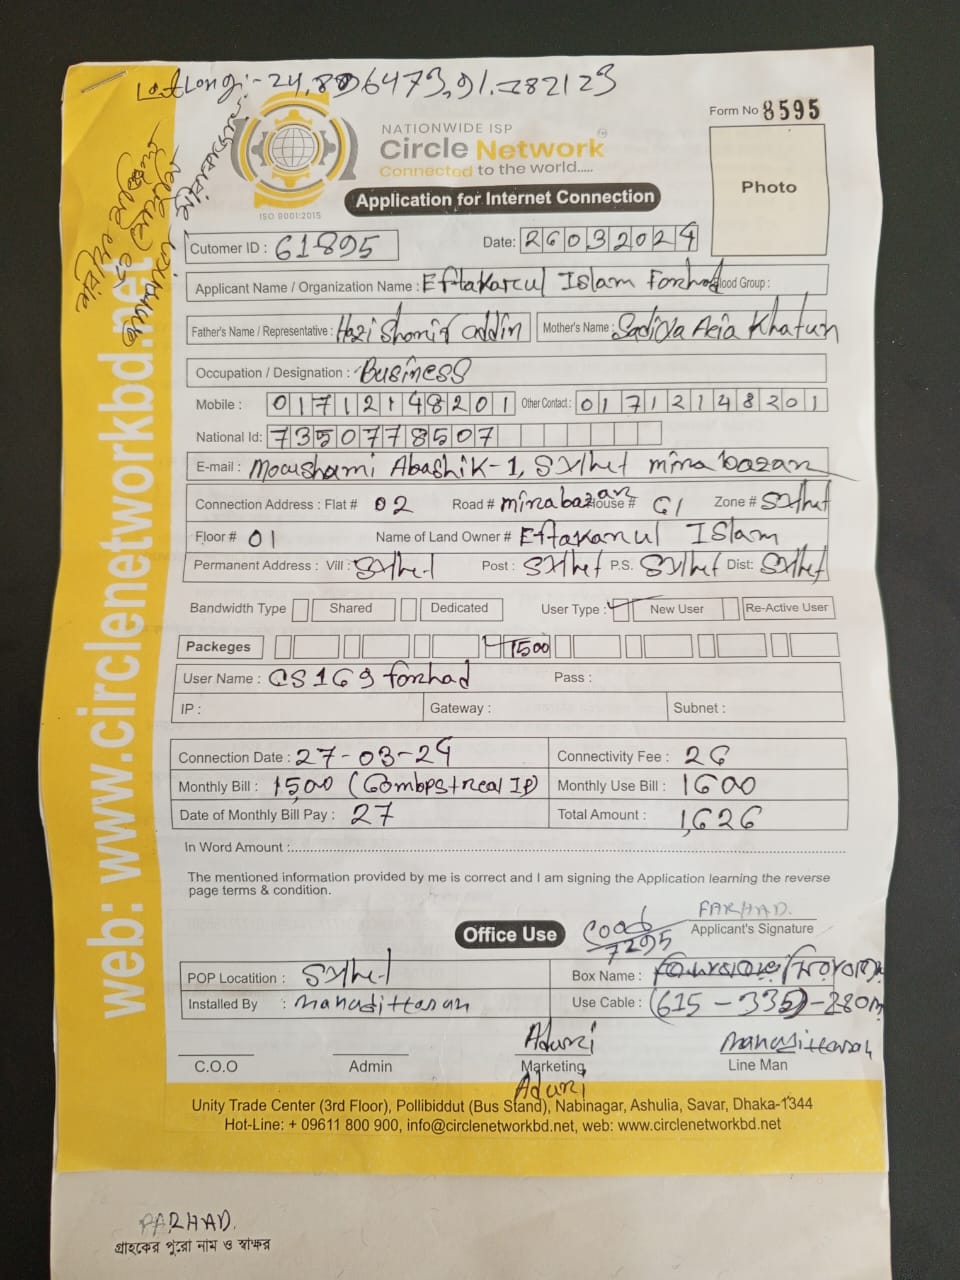 Lat Long:- 24.896473,91.
Form No 8595
NATIONWIDE ISP
Circle Network
Connected to the world.....
Photo
ISO 9001:2015
Application for Internet Connection
Cutomer ID : 61895
Date: 26032024
Applicant Name / Organization Name : Eftakarul Islam Forhad Blood Group :
Father's Name / Representative : Hazi Mother's Name : Khatun
Occupation / Designation : Business
Mobile : 01712148201 Other Contact : 01712148201
National Id: 7350778507
E-mail : Moushami Abashik-1, Sylhet mirabazar
Connection Address : Flat # 02 Road # mirabazar House # 61 Zone # Sylhet
Floor # 01 Name of Land Owner # Eftakarul Islam
Permanent Address : Vill : Sylhet Post : Sylhet P.S. Sylhet Dist: Sylhet
Bandwidth Type Shared Dedicated User Type : New User Re-Active User
Packeges 1500
User Name : CS169forhad Pass :
IP : Gateway : Subnet :
Connection Date : 27-03-24 Connectivity Fee : 26
Monthly Bill : 1,500 (60mbps+real IP) Monthly Use Bill : 1600
Date of Monthly Bill Pay : 27 Total Amount : 1,626
In Word Amount :
The mentioned information provided by me is correct and I am signing the Application learning the reverse
page terms & condition.
FARHAD.
Office Use
7295
Applicant's Signature
POP Locatition : Sylhet Box Name :
Installed By : Use Cable : (615 - 335)-280m
C.O.O Admin Marketing Line Man
Unity Trade Center (3rd Floor), Pollibiddut (Bus Stand), Nabinagar, Ashulia, Savar, Dhaka-1344
Hot-Line: + 09611 800 900, info@circlenetworkbd.net, web: www.circlenetworkbd.net
web: www.circlenetworkbd.net
FARHAD.
গ্রাহকের পুরো নাম ও স্বাক্ষর